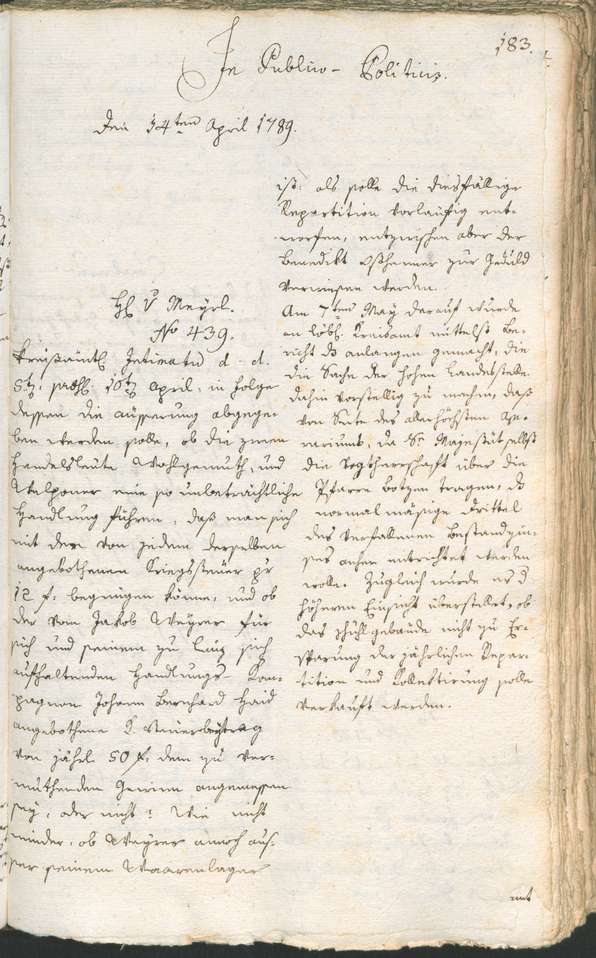 183.
In Publico-Politicis.
Den 14ten April 1789.
Hl. v Meyrl.
No 439.
Kreisämtl. Intimatum d. d.
8t. praes. 10t. April, in Folge
dessen die äusserung abgege-
ben werden solle, ob die zween
Handelsleute Wohlgemuth, und
Walponer eine so unbeträchtliche
Handlung führen, daß man sich
mit dem von jedem derselben
angebothenen Kriegssteuer pr
12 f. begnügen könne, und ob
der vom Jakob Weyrer für
sich und seinem zu Linz sich
aufhaltenden Handlungs-Kom-
pagnon Johann Bernhard Haid
angebothene K. Steuerbeytrag
von jährl. 50 f. dem zu ver-
muthenden Gewinn angemessen
sey, oder nicht? Wie nicht
minder, ob Weyrer annoch aus-
ser seinem Waarenlager
ist: als solle die diesfällige
Repartition vorläufig ent-
worfen, entzwischen aber der
Benedikt zur Geduld
verwiesen werden.
Am 7ten May darauf wurde
an löbl. Kreisamt mittelst Be-
richt das anlangen gemacht, die
die Sache der hohen Landesstelle
dahin vorstellig zu machen, daß
von Seite des allerhöchsten Ae-
rariums, da Se Majestät selbst
die Vogtherrschaft über die
Pfarre Botzen tragen, das
normalmäsige Drittel
des verfallenen Bestandzin-
ses anher entrichtet werden
wolle. Zugleich wurde es d
höheren Einsicht überstellet, ob
das Schulgebäude nicht zu Er-
sparung der jährlichen Repar-
tition und Kollektirung solle
verkauft werden.
amt